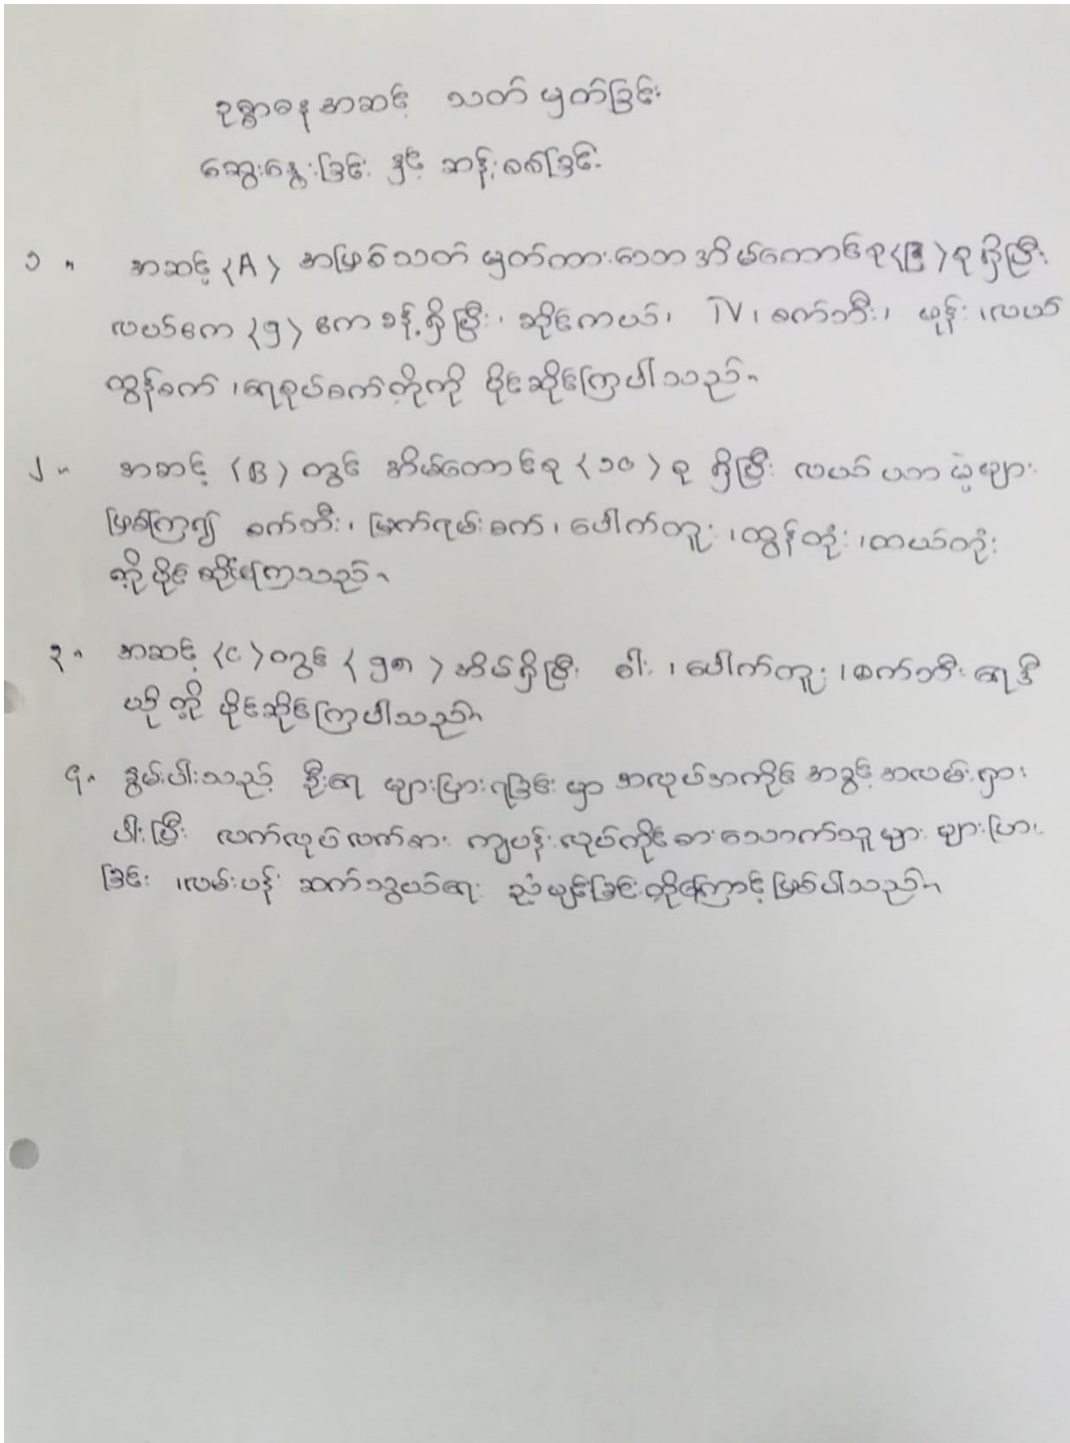 ဥစ္စာဓန အဆင့် သတ်မှတ်ခြင်း
ဆွေးနွေးခြင်း နှင့် ဆန်းစစ်ခြင်း
၁။ အဆင့် (A) အဖြစ်သတ်မှတ်ထားသော အိမ်ထောင်စု စု ရှိပြီး
လယ်ဧက (၅) ဧကခန့်ရှိပြီး၊ ဆိုင်ကယ်၊ TV၊ စက်ဘီး၊ ဖုန်း၊ လယ်
ထွန်စက်၊ ရေစုပ်စက်တို့ကို ပိုင်ဆိုင်ကြပါသည်။
၂။ အဆင့် (B) တွင် အိမ်ထောင်စု (၁၀) စု ရှိပြီး လယ်ယာမဲ့များ
ဖြစ်ကြ၍ စက်ဘီး၊ မြက်ရမ်းစက်၊ ပေါက်တူး၊ ထွန်တုံး၊ ထယ်တုံး
တို့ပိုင်ဆိုင်ကြသည်။
၃။ အဆင့် (C) တွင် (၅၈) အိမ်ရှိပြီး ဓါး၊ ပေါက်တူး၊ စက်ဘီး ရေဒီ
ယိုတို့ ပိုင်ဆိုင်ကြပါသည်။
၄။ နွမ်းပါးသည့် ဦးရေ များပြားရခြင်းမှာ အလုပ်အကိုင် အခွင့်အလမ်းရှား
ပါးပြီး လက်လုပ်လက်စား ကျပန်းလုပ်ကိုင်စားသောက်သူများ များပြား
ခြင်း၊ လမ်းပန်းဆက်သွယ်ရေး ညံ့ဖျင်းခြင်းတို့ကြောင့်ဖြစ်ပါသည်။